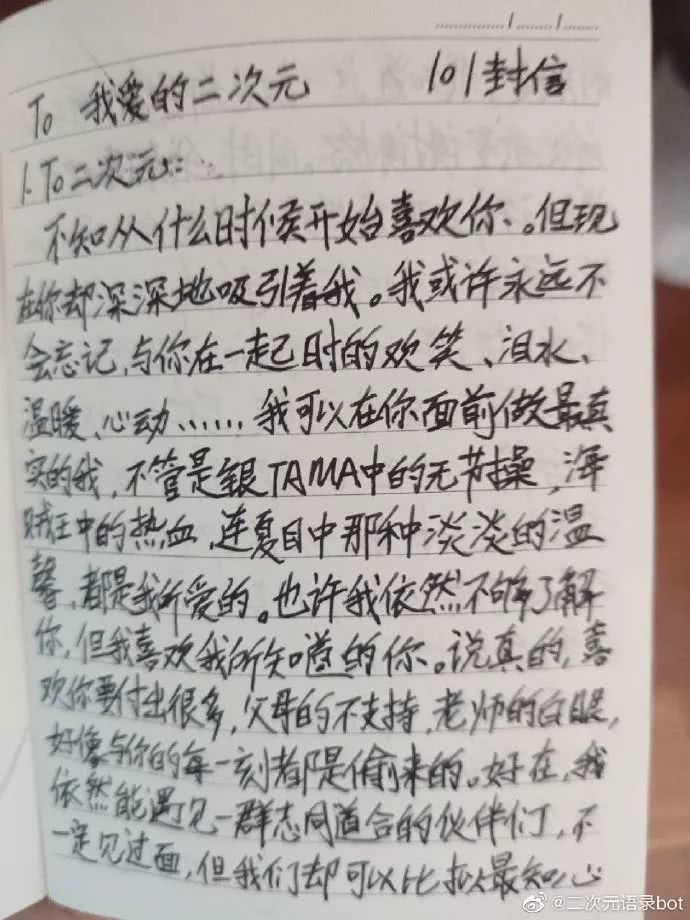 To 我爱的二次元 101封信
1. To二次元:
不知从什么时候开始喜欢你、。但现
在你却深深地吸引着我。我或许永远不
会忘记,与你在一起时的欢笑、泪水、
温暖、心动……我可以在你面前做最真
实的我,不管是银TAMA中的无节操,海
贼王中的热血,连夏目中那种淡淡的温
馨,都是我所爱的。也许我依然不够了解
你,但我喜欢我所知道的你。说真的,喜
欢你要付出很多,父母的不支持,老师的白眼,
好像与你的每一刻都是偷来的。好在,我
依然能遇见一群志同道合的伙伴们,不
一定见过面,但我们却可以比拟最知心
@二次元语录bot